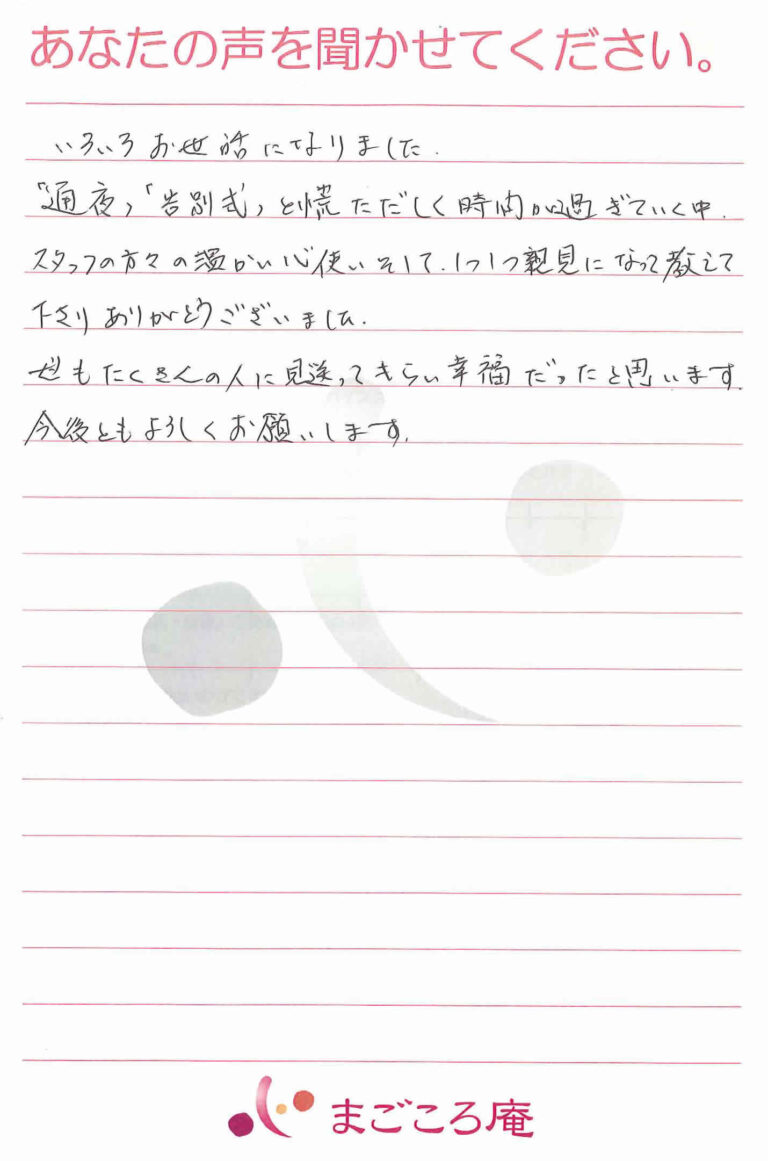 あなたの声を聞かせてください。
いろいろお世話になりました.
「通夜」「告別式」と慌ただしく時間が過ぎていく中.
スタッフの方々の温かい心使いそして.1つ1つ親見になって教えて
下さりありがとうございました.
もたくさんの人に見送ってもらい幸福だったと思います.
今後ともよろしくお願いします.
まごころ庵